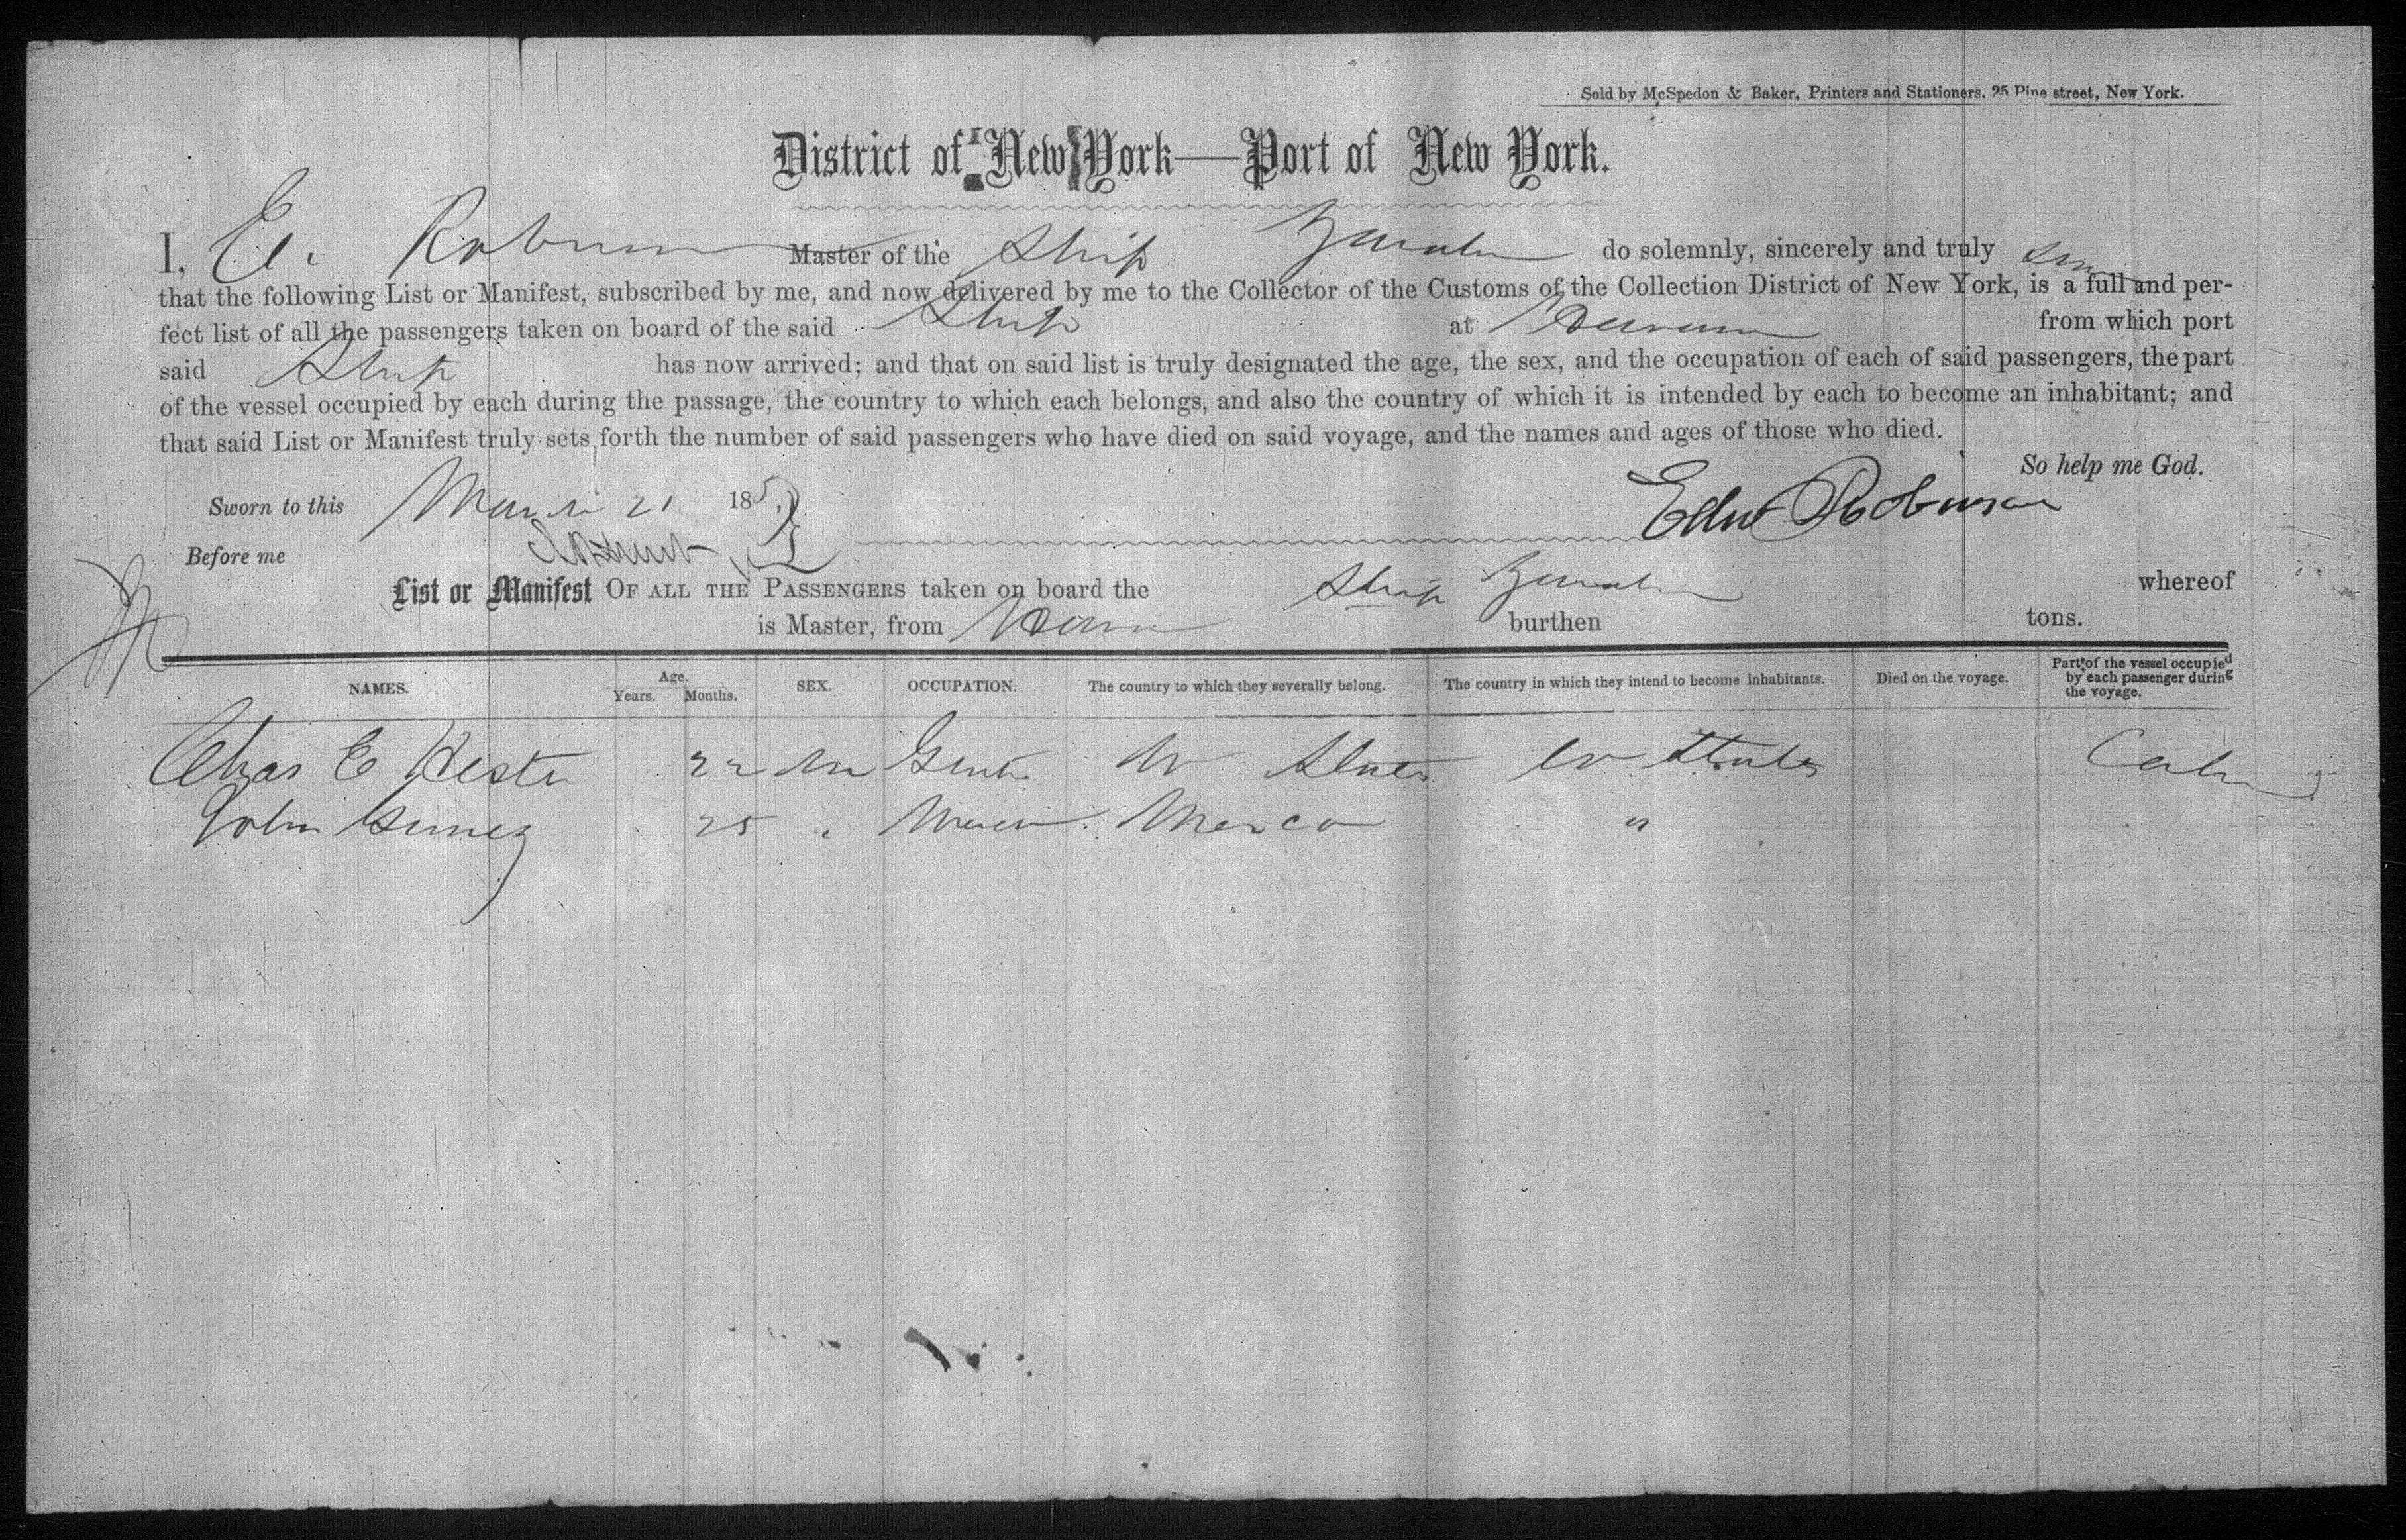 Sold by McSpedon & Baker, Printers and Stationers. 25 Pine street, New York.
District of New York—Port of New York.
I, E. Robinson Master of the Ship do solemnly, sincerely and truly
that the following List or Manifest, subscribed by me, and now delivered by me to the Collector of the Customs of the Collection District of New York, is a full and per-
fect list of all the passengers taken on board of the said Ship at from which port
said Ship has now arrived; and that on said list is truly designated the age, the sex, and the occupation of each of said passengers, the part
of the vessel occupied by each during the passage, the country to which each belongs, and also the country of which it is intended by each to become an inhabitant; and
that said List or Manifest truly sets forth the number of said passengers who have died on said voyage, and the names and ages of those who died.
So help me God.
Sworn to this March 21 185
Robinson
Before me
List or Manifest OF ALL THE PASSENGERS taken on board the Ship whereof
is Master, from burthen tons.
NAMES. Age. Years. Months. SEX. OCCUPATION. The country to which they severally belong. The country in which they intend to become inhabitants. Died on the voyage. Part of the vessel occupied by each passenger during the voyage.
Chas E 22 M Gent U States U States Cabin
John 25 " Mexico "